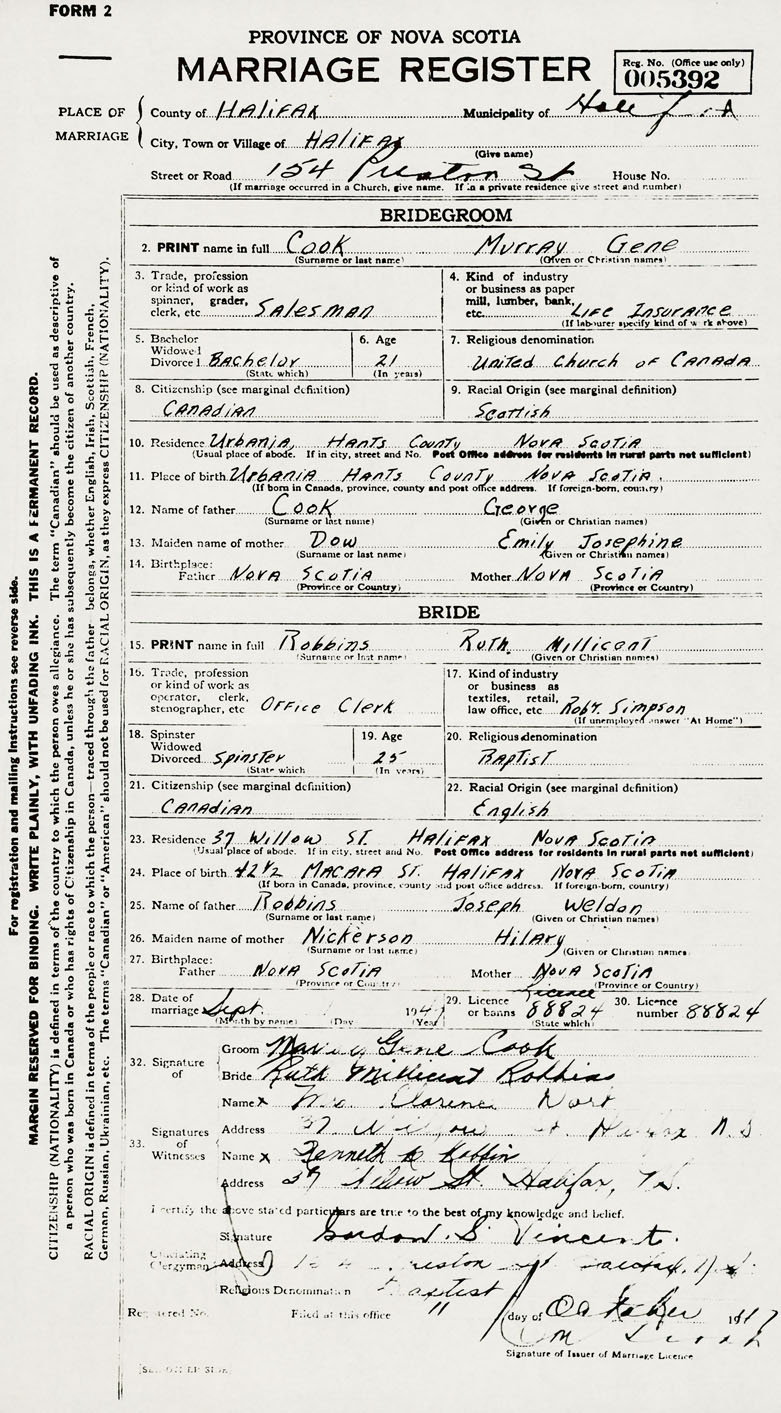 FORM 2
PROVINCE OF NOVA SCOTIA
MARRIAGE REGISTER
Reg. No. (Office use only)
005392
PLACE OF MARRIAGE
County of HALIFAX Municipality of
City, Town or Village of HALIFAX
(Give name)
Street or Road 154 Preston St House No.
(If marriage occurred in a Church, give name. If in a private residence give street and number)
BRIDEGROOM
2. PRINT name in full COOK MURRAY GENE
(Surname or last name) (Given or Christian names)
3. Trade, profession or kind of work as spinner, grader, clerk, etc SALESMAN
4. Kind of industry or business as paper mill, lumber, bank, etc. LIFE INSURANCE
(If labourer specify kind of work above)
5. Bachelor Widowed Divorced BACHELOR
(State which)
6. Age 21
(In years)
7. Religious denomination
UNITED CHURCH OF CANADA
8. Citizenship (see marginal definition)
CANADIAN
9. Racial Origin (see marginal definition)
SCOTTISH
10. Residence URBANIA, HANTS COUNTY NOVA SCOTIA
(Usual place of abode. If in city, street and No. Post Office address for residents in rural parts not sufficient)
11. Place of birth URBANIA HANTS COUNTY NOVA SCOTIA.
(If born in Canada, province, county and post office address. If foreign-born, country)
12. Name of father COOK GEORGE
(Surname or last name) (Given or Christian names)
13. Maiden name of mother DOW EMILY JOSEPHINE
(Surname or last name) (Given or Christian names)
14. Birthplace:
Father NOVA SCOTIA Mother NOVA SCOTIA
(Province or Country) (Province or Country)
BRIDE
15. PRINT name in full ROBBINS RUTH MILLICENT
(Surname or last name) (Given or Christian names)
16. Trade, profession or kind of work as operator, clerk, stenographer, etc OFFICE CLERK
17. Kind of industry or business as textiles, retail, law office, etc ROBT. SIMPSON
(If unemployed answer "At Home")
18. Spinster Widowed Divorced SPINSTER
(State which
19. Age 25
(In years)
20. Religious denomination
BAPTIST
21. Citizenship (see marginal definition)
CANADIAN
22. Racial Origin (see marginal definition)
ENGLISH
23. Residence 37 WILLOW ST. HALIFAX NOVA SCOTIA
(Usual place of abode. If in city, street and No. Post Office address for residents in rural parts not sufficient)
24. Place of birth 42½ MACARA ST. HALIFAX NOVA SCOTIA
(If born in Canada, province, county and post office address. If foreign-born, country)
25. Name of father ROBBINS JOSEPH WELDON
(Surname or last name) (Given or Christian names)
26. Maiden name of mother NICKERSON HILARY
(Surname or last name) (Given or Christian names)
27. Birthplace:
Father NOVA SCOTIA Mother NOVA SCOTIA
(Province or Country) (Province or Country)
28. Date of marriage Sept. 1947
(Month by name) (Day (Year)
29. Licence or banns Licence 88824
(State which)
30. Licence number 88824
32. Signature of
Groom Murray Gene Cook
Bride Ruth Millicent Robbins
33. Signatures of Witnesses
Name x Clarence
Address 37 Willow Halifax N.S
Name x Kenneth
Address 37 Willow St. Halifax, N.S.
I certify the above stated particulars are true to the best of my knowledge and belief.
Signature Gordon S Vincent.
Officiating Clergyman
Address
Religious Denomination Baptist
Registered No. Filed at this office 11 day of October 1947
Signature of Issuer of Marriage Licence
For registration and mailing instructions see reverse side.
MARGIN RESERVED FOR BINDING. WRITE PLAINLY, WITH UNFADING INK. THIS IS A PERMANENT RECORD.
CITIZENSHIP (NATIONALITY) is defined in terms of the country to which the person owes allegiance. The term "Canadian" should be used as descriptive of
a person who was born in Canada or who has rights of Citizenship in Canada, unless he or she has subsequently become the citizen of another country.
RACIAL ORIGIN is defined in terms of the people or race to which the person—traced through the father—belongs, whether English, Irish, Scottish, French,
German, Russian, Ukrainian, etc. The terms "Canadian" or "American" should not be used for RACIAL ORIGIN, as they express CITIZENSHIP (NATIONALITY).